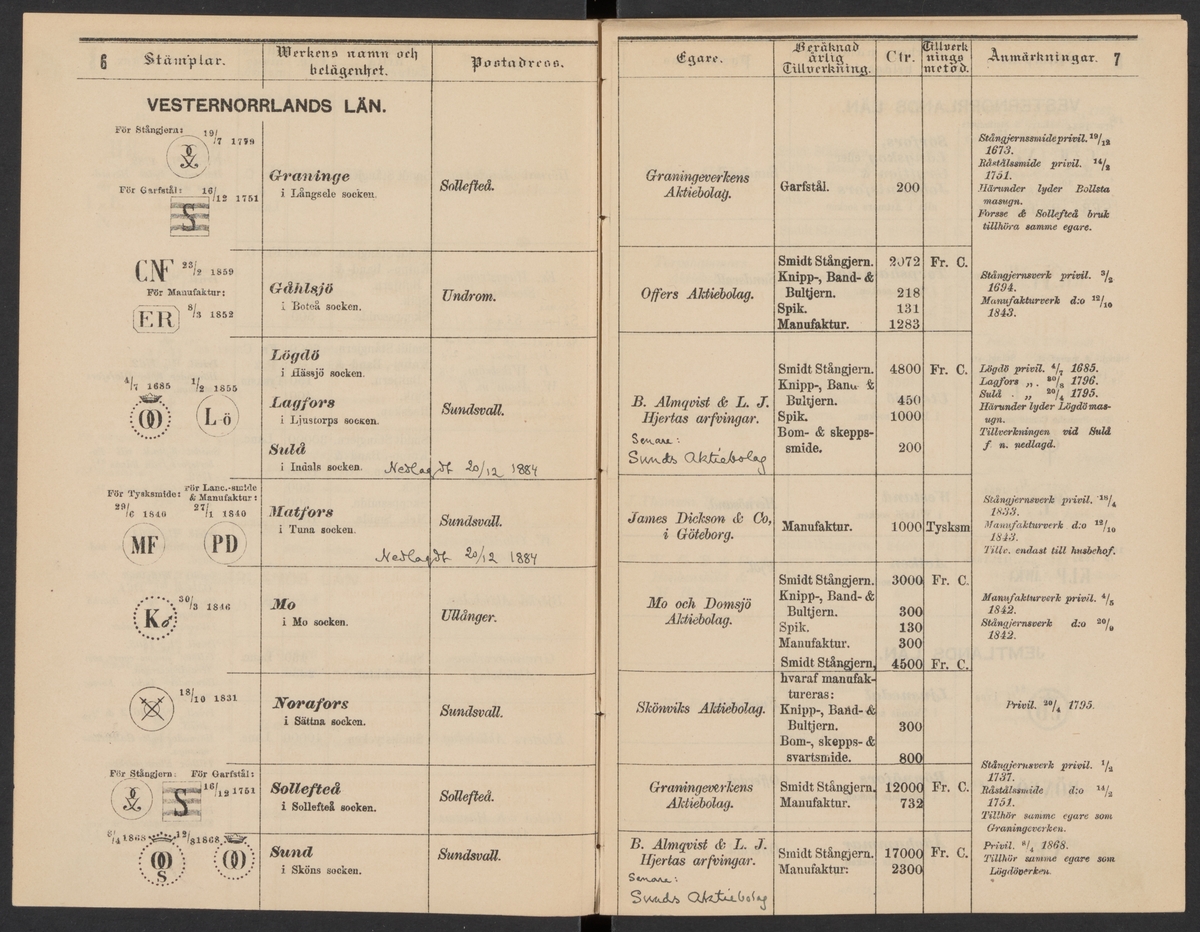 6 Stämplar. Werkens namn och belägenhet. Postadress.
VESTERNORRLANDS LÄN.
För Stångjern: 19/7 1779
För Garfstål: 16/12 1751
S
Graninge
i Långsele socken.
Sollefteå.
CNF 23/2 1859
För Manufaktur:
ER 8/3 1852
Gåhlsjö
i Boteå socken.
Undrom.
4/7 1685 1/2 1855
L ö
Lögdö
i Hässjö socken.
Lagfors
i Ljustorps socken.
Sulå
i Indals socken.
Sundsvall.
Nedlagdt 20/12 1884
För Tysksmide: För Lanc.-smide
& Manufaktur:
29/6 1840 27/1 1840
MF PD
Matfors
i Tuna socken.
Sundsvall.
Nedlagdt 20/12 1884
K 30/3 1846
Mo
i Mo socken.
Ullånger.
18/10 1831
Norafors
i Sättna socken.
Sundsvall.
För Stångjern: För Garfstål:
S 16/12 1751
Sollefteå
i Sollefteå socken.
Sollefteå.
6/4 1868 12/8 1868
S
Sund
i Sköns socken.
Sundsvall.
Egare. Beräknad årlig Tillverkning. Ctr. Tillverknings metod. Anmärkningar. 7
Graningeverkens
Aktiebolag.
Garfstål. 200
Stångjernssmide privil. 19/12
1673.
Råstålssmide privil. 14/2
1751.
Härunder lyder Bollsta
masugn.
Forsse & Sollefteå bruk
tillhöra samme egare.
Offers Aktiebolag.
Smidt Stångjern. 2072 Fr. C.
Knipp-, Band- &
Bultjern. 218
Spik. 131
Manufaktur. 1283
Stångjernsverk privil. 3/2
1694.
Manufakturverk d:o 12/10
1843.
B. Almqvist & L. J.
Hjertas arfvingar.
Senare:
Sunds Aktiebolag
Smidt Stångjern. 4800 Fr. C.
Knipp-, Band &
Bultjern. 450
Spik. 1000
Bom- & skepps-
smide. 200
Lögdö privil. 4/7 1685.
Lagfors „ . 30/8 1796.
Sulå . „ 20/4 1795.
Härunder lyder Lögdö mas-
ugn.
Tillverkningen vid Sulå
f n. nedlagd.
James Dickson & Co,
i Göteborg.
Manufaktur. 1000 Tysksm
Stångjernsverk privil. 18/4
1833.
Manufakturverk d:o 12/10
1843.
Tillv. endast till husbehof.
Mo och Domsjö
Aktiebolag.
Smidt Stångjern. 3000 Fr. C.
Knipp-, Band- &
Bultjern. 300
Spik. 130
Manufaktur. 300
Manufakturverk privil. 4/5
1842.
Stångjernsverk d:o 20/9
1842.
Skönviks Aktiebolag.
Smidt Stångjern, 4500 Fr. C.
hvaraf manufak-
tureras:
Knipp-, Band- &
Bultjern. 300
Bom-, skepps- &
svartsmide. 800
Privil. 20/4 1795.
Graningeverkens
Aktiebolag.
Smidt Stångjern. 12000 Fr. C.
Manufaktur. 732
Stångjernsverk privil. 1/2
1737.
Råstålssmide d:o 14/2
1751.
Tillhör samme egare som
Graningeverken.
B. Almqvist & L. J.
Hjertas arfvingar.
Senare:
Sunds Aktiebolag
Smidt Stångjern. 17000 Fr. C.
Manufaktur: 2300
Privil. 6/4 1868.
Tillhör samme egare som
Lögdöverken.